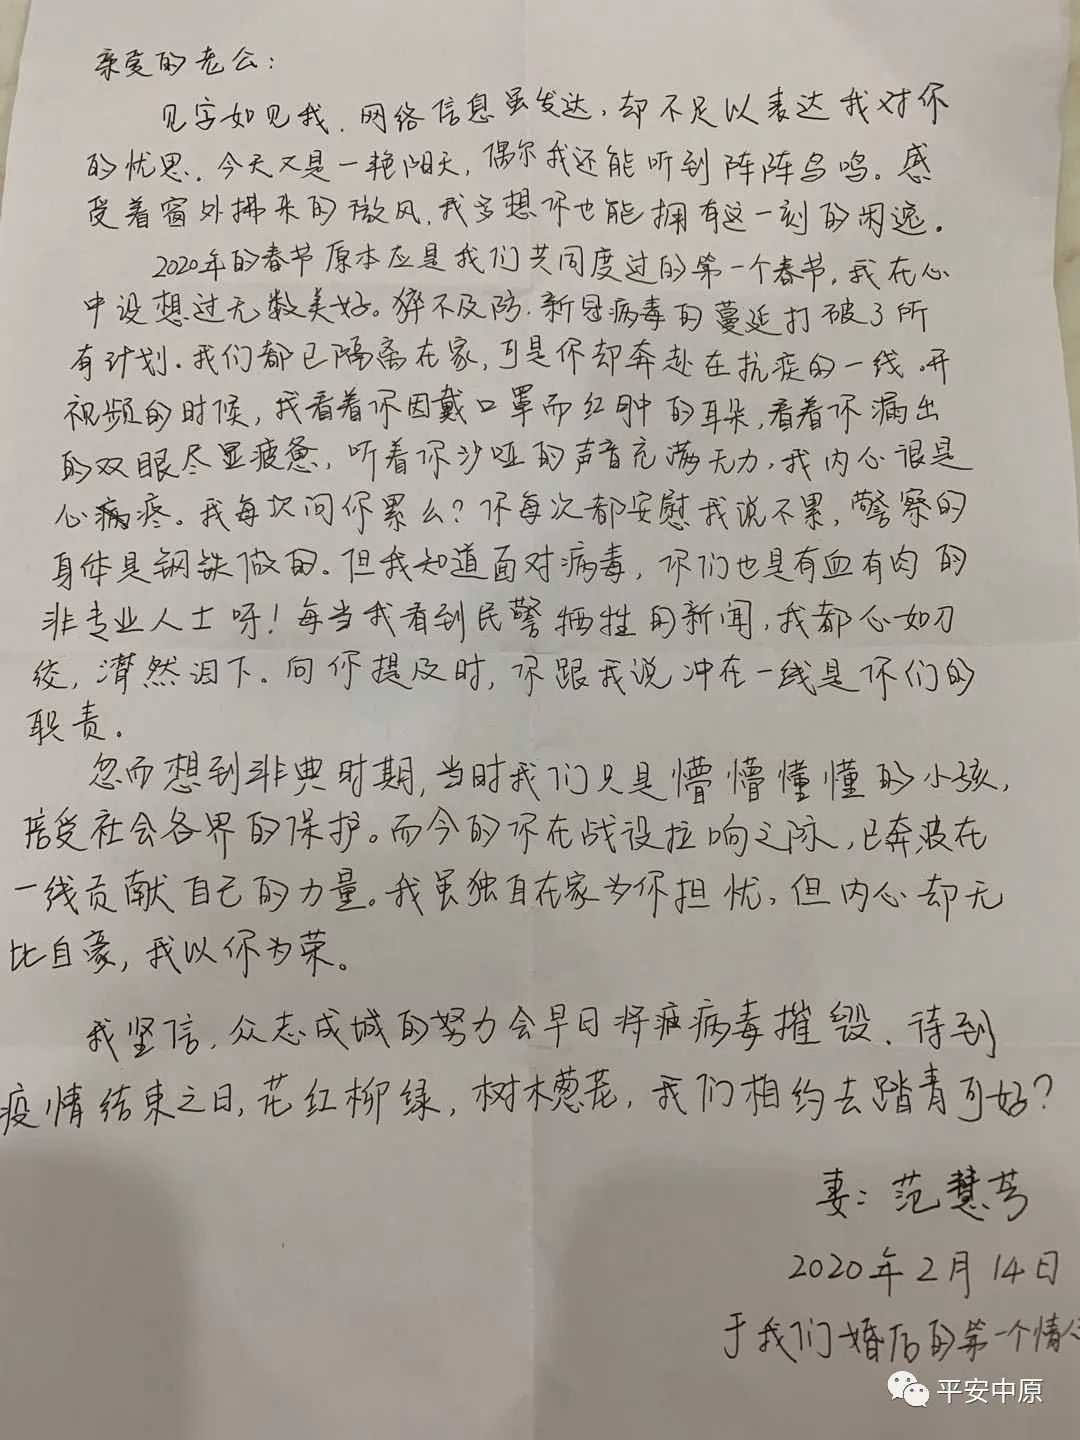 亲爱的老公：
见字如见我．网络信息虽发达，却不足以表达我对你
的忧思．今天又是一艳阳天，偶尔我还能听到阵阵鸟鸣。感
受着窗外拂来的微风，我多想你也能拥有这一刻的闲逸。
2020年的春节原本应是我们共同度过的第一个春节，我在心
中设想过无数美好。猝不及防．新冠病毒的蔓延打破了所
有计划．我们都已隔离在家，可是你却奔赴在抗疫的一线．开
视频的时候，我看着你因戴口罩而红肿的耳朵，看着你漏出
的双眼尽显疲惫，听着你沙哑的声音充满无力，我内心很是
心疼。我每次问你累么？你每次都安慰我说不累，警察的
身体是钢铁做的．但我知道面对病毒，你们也是有血有肉的
非专业人士呀！每当我看到民警牺牲的新闻，我都心如刀
绞，潸然泪下．向你提及时，你跟我说冲在一线是你们的
职责。
忽而想到非典时期，当时我们只是懵懵懂懂的小孩，
接受社会各界的保护。而今的你在战役拉响之际，已奔波在
一线贡献自己的力量。我虽独自在家为你担忧，但内心却无
比自豪，我以你为荣。
我坚信，众志成城的努力会早日将疫病毒摧毁．待到
疫情结束之日，花红柳绿，树木葱茏，我们相约去踏青可好？
妻：范慧芳
2020年2月14日
于我们婚后的第一个情
平安中原